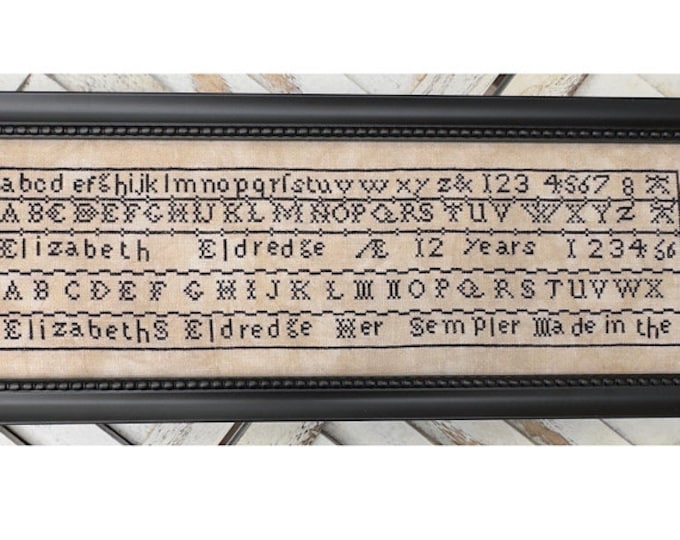 abcd efghijklmnopqrſstuvwxyz& 123 45678
ABCDEFGHIJKLMNOPQRSTUVWXYZ
Elizabeth Eldredge Æ 12 years 1234566
ABCDEFGHIJKLMNOPQRSTUVWX
ElizabethS Eldredge Her Sempler Made in the